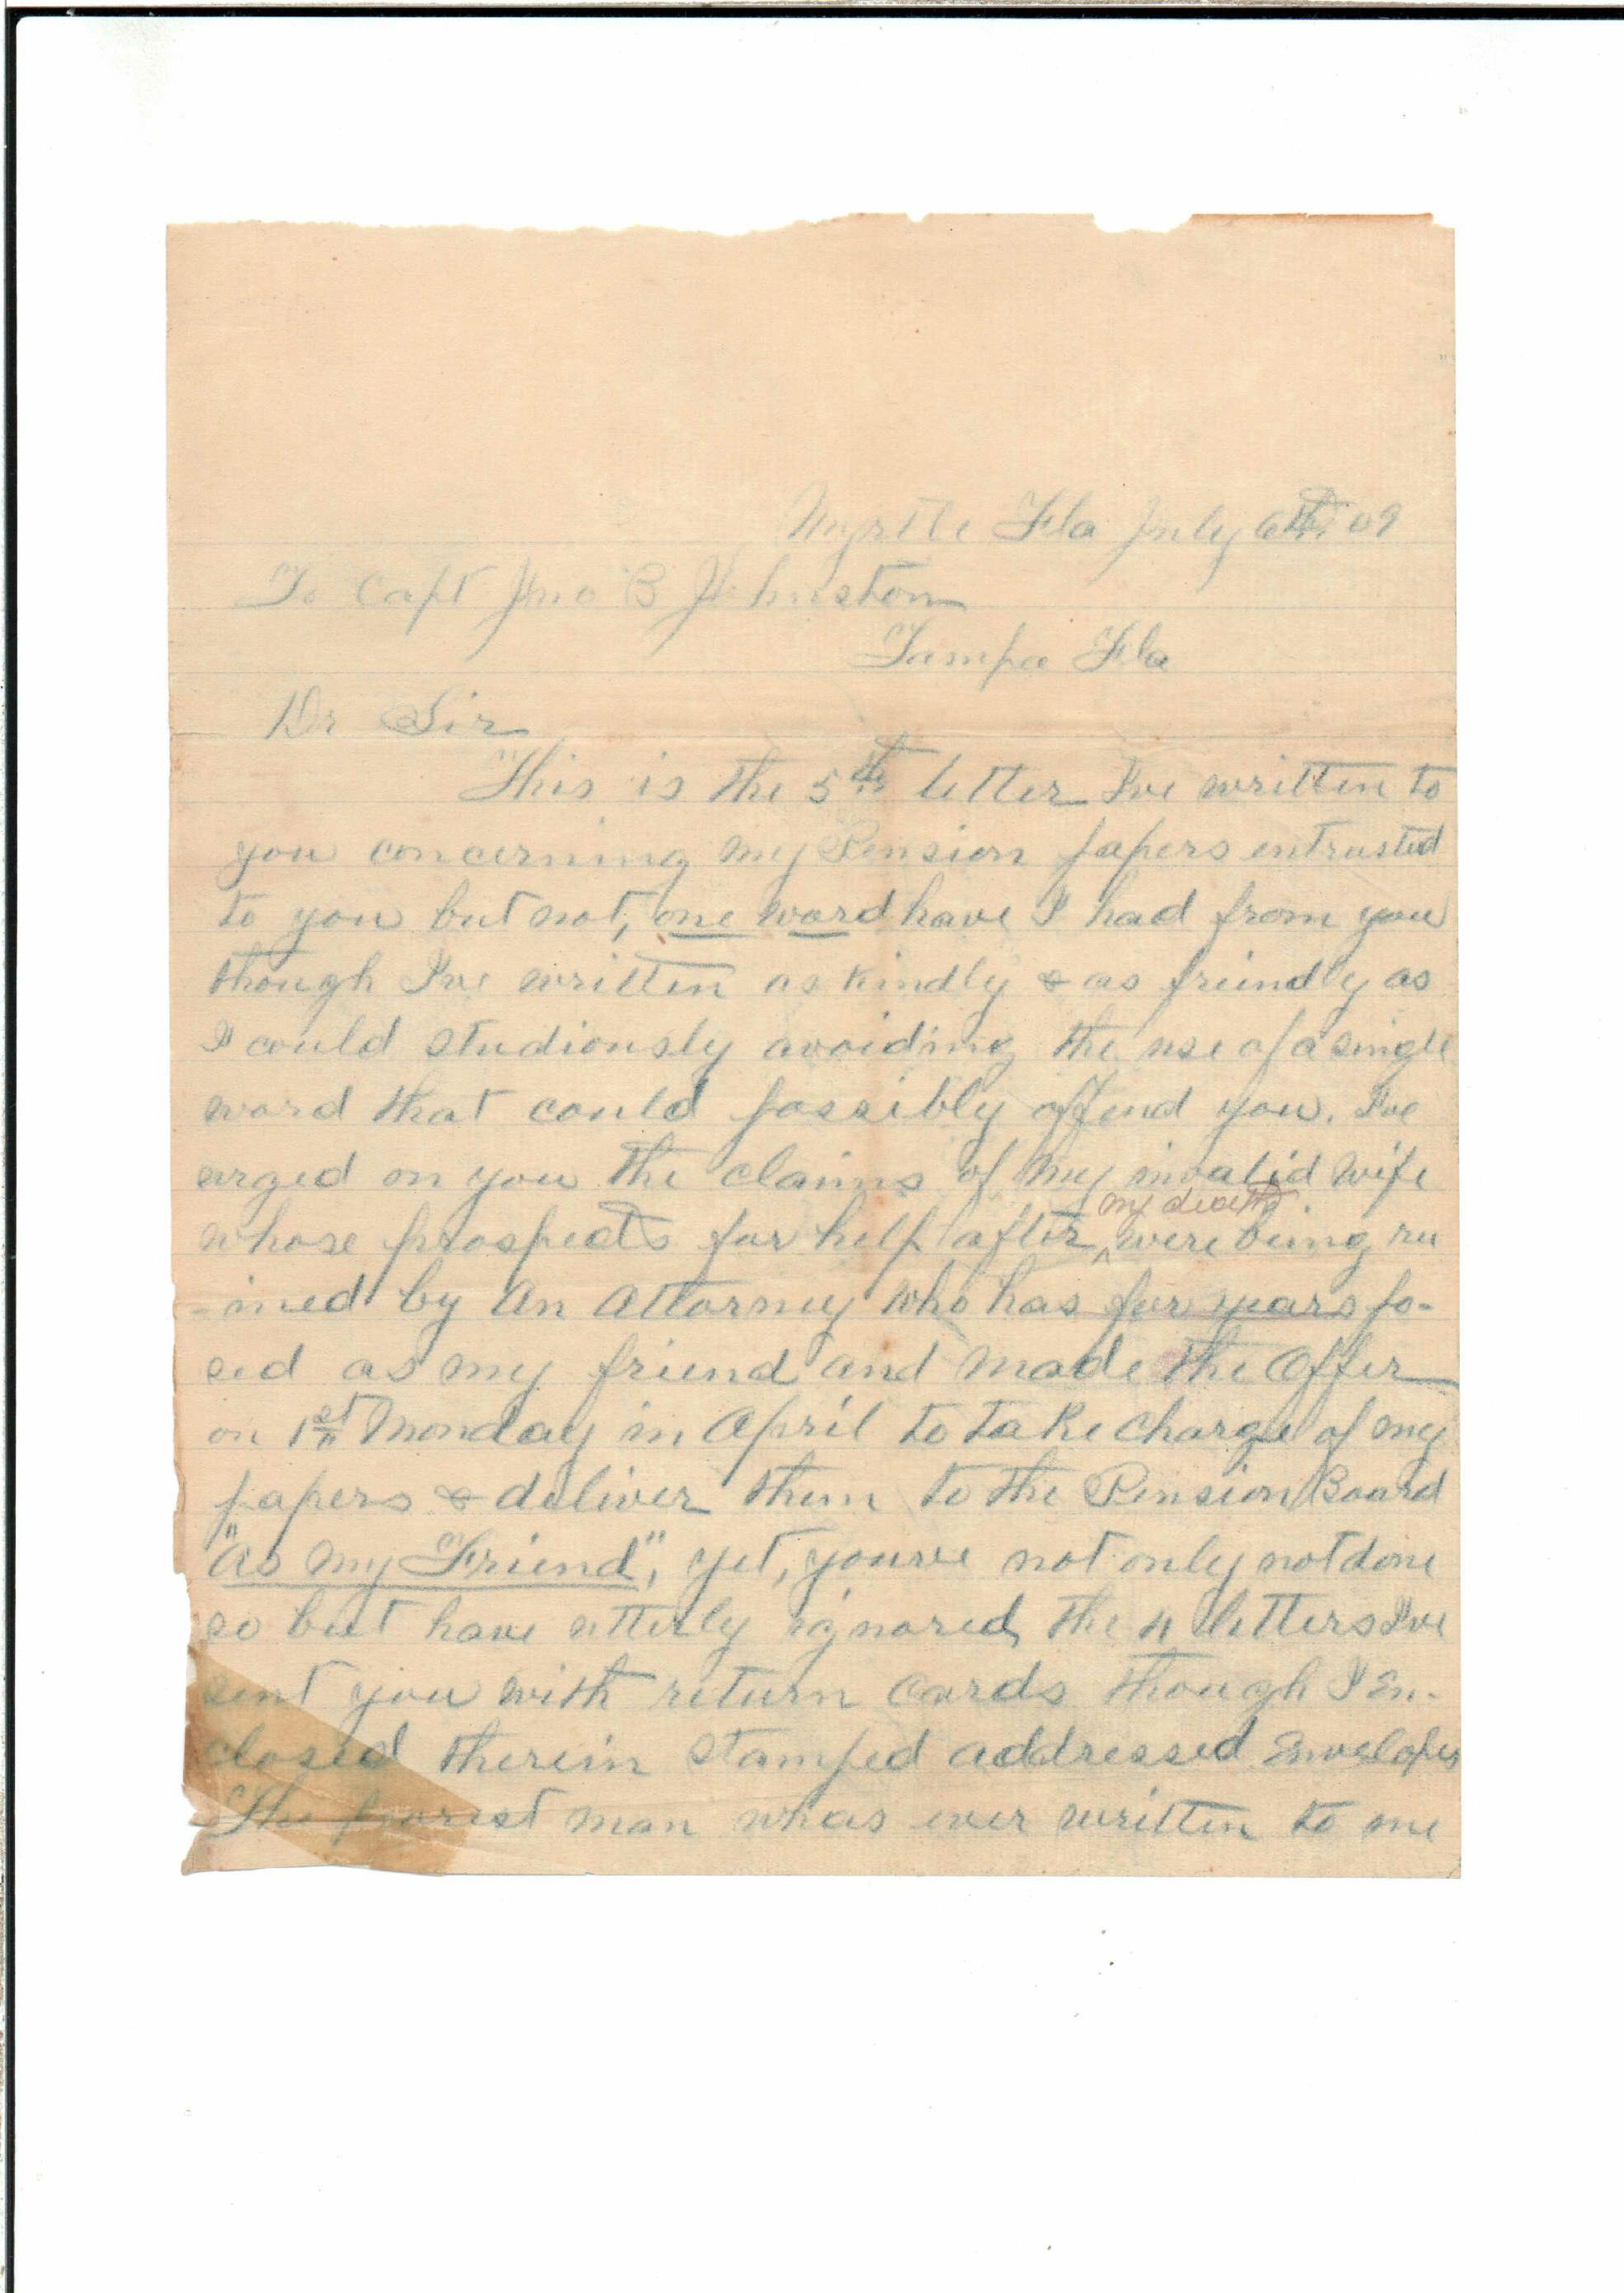 Myrtle Fla July 6th 09
To Capt Jno B Johnston
Tampa Fla
Dr Sir
This is the 5th letter I've written to
you concerning my Pension papers entrusted
to you but not, one word have I had from you
though I've written as kindly & as friendly as
I could studiously avoiding the use of a single
word that could possibly offend you. I've
urged on you the claims of my invalid wife
my death
whose prospects for help after ^ were being ru
-ined by an Attorney who has for years po-
sed as my friend and made the Offer
on 1st Monday in April to take charge of my
papers & deliver them to the Pension Board
"as my Friend", yet, youve not only not done
so but have utterly ignored the 4 letters I've
sent you with return cards though I En-
closed therein stamped addressed Envelopes
The poorest man whas ever written to me